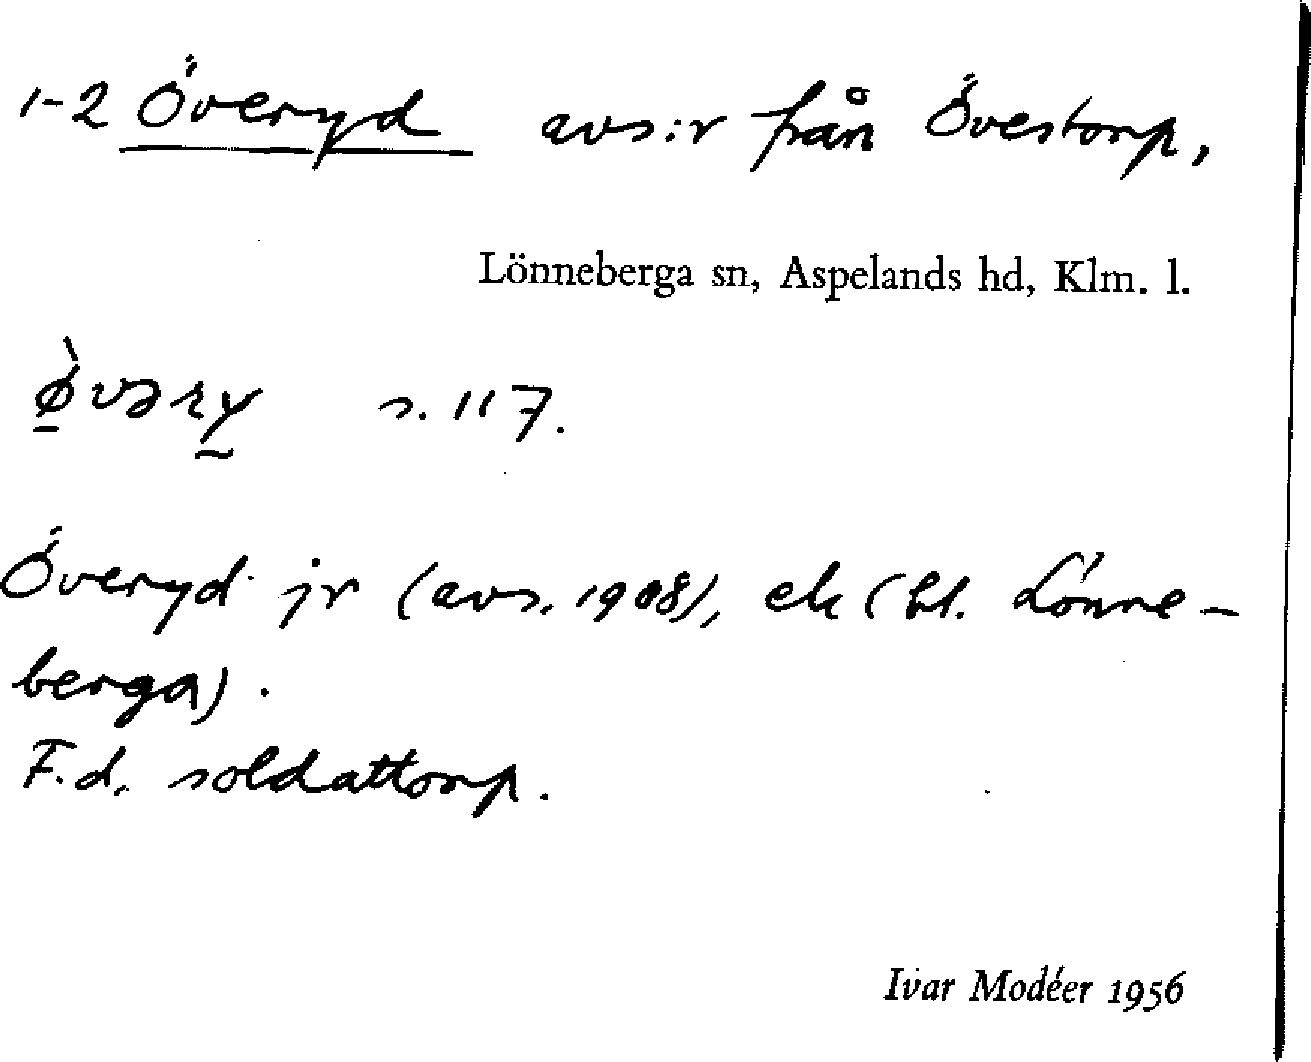 1-2 Överyd avs:r från Övestorp,
Lönneberga sn, Aspelands hd, Klm. l.
s. 117.
Överyd jr (avs. 1908), ek (bl. Lönne-
berga).
F.d. soldattorp.
Ivar Modéer 1956